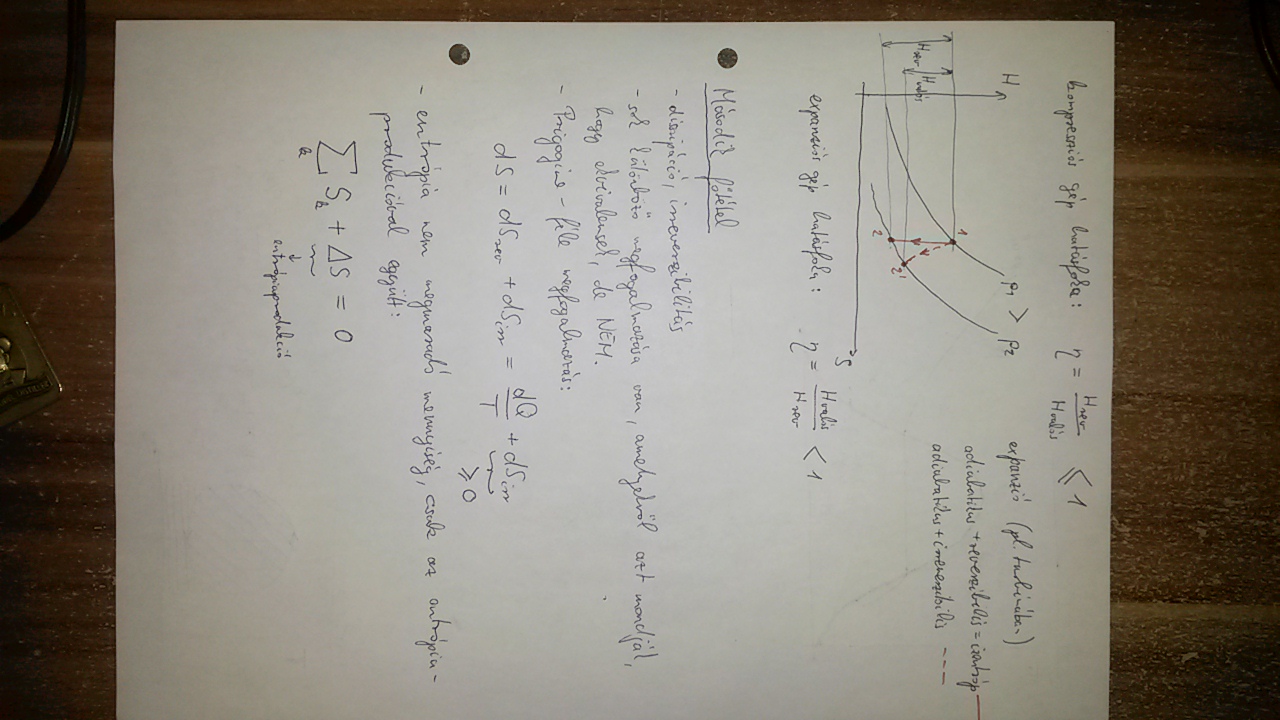 kompressziós gép hatásfoka: η = Hrev / Hvalós ≤ 1
H
Hrev
Hvalós
1
2
2'
p1 > p2
S
expanzió (pl. turbinában)
adiabatikus + reverzibilis = izentróp —
adiabatikus + irreverzibilis ---
expanziós gép hatásfoka: η = Hvalós / Hrev < 1
Második főtétel
- disszipáció, irreverzibilitás
- sok különböző megfogalmazása van, amelyekről azt mondják,
hogy ekvivalensek, de NEM.
- Prigogine-féle megfogalmazás:
dS = dSrev + dSirr = dQ/T + dSirr
≥ 0
- entrópia nem megmaradó mennyiség, csak az entrópia-
produkcióval együtt:
∑k Sk + ΔS = 0
entrópiaprodukció